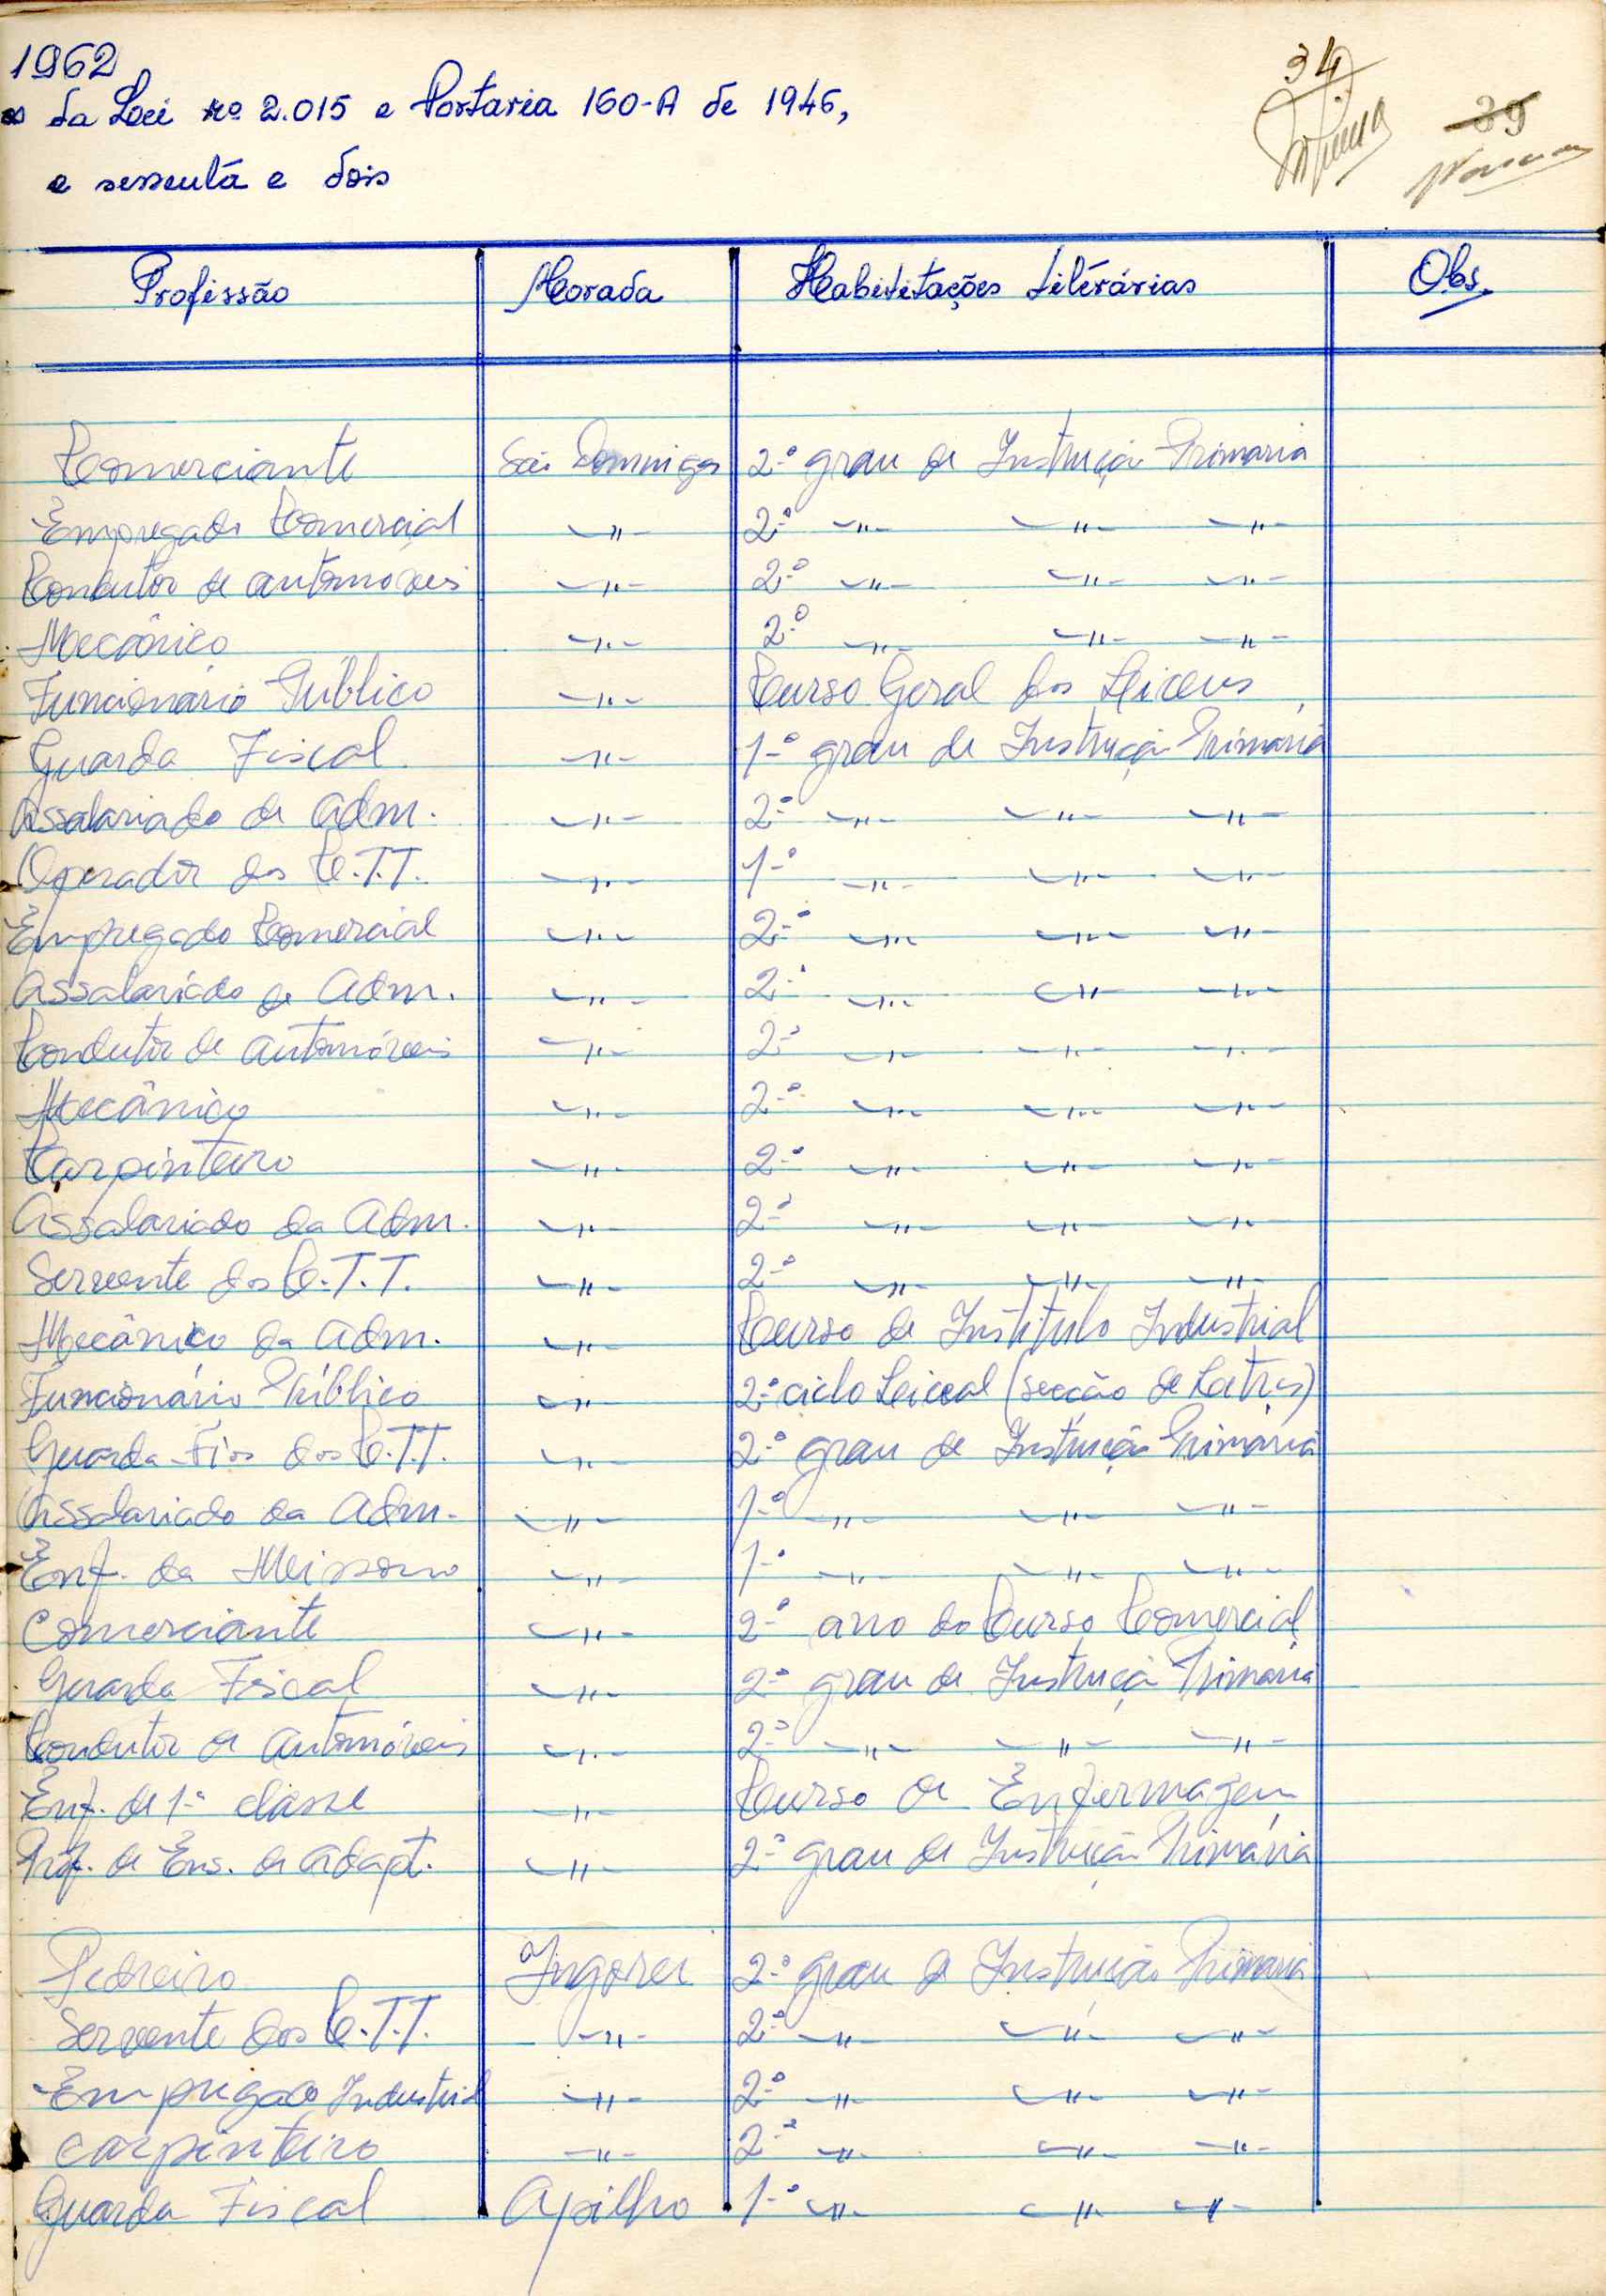 1962
da Lei nº 2.015 e Portaria 160-A de 1946,
e sessenta e dois
34
39
Profissão Morada Habilitações Literárias Obs.
Comerciante São Domingos 2.º grau de Instrução Primaria
Empregado Comercial -"- 2.º -"- -"- -"-
Condutor de automóveis -"- 2.º -"- -"- -"-
Mecânico -"- 2.º -"- -"- -"-
Funcionário Público -"- Curso Geral dos Liceus
Guarda Fiscal -"- 1.º grau de Instrução Primária
Assalariado de Adm. -"- 2.º -"- -"- -"-
Operador dos C.T.T. -"- 1.º -"- -"- -"-
Empregado Comercial -"- 2.º -"- -"- -"-
Assalariado de Adm. -"- 2.º -"- -"- -"-
Condutor de automóveis -"- 2.º -"- -"- -"-
Mecânico -"- 2.º -"- -"- -"-
Carpinteiro -"- 2.º -"- -"- -"-
Assalariado da Adm. -"- 2.º -"- -"- -"-
Servente dos C.T.T. -"- 2.º -"- -"- -"-
Mecânico da Adm. -"- Curso de Instituto Industrial
Funcionário Público -"- 2.º ciclo Liceal (secção de Letras)
Guarda-Fios dos C.T.T. -"- 2.º grau de Instrução Primária
Assalariado da Adm. -"- 1.º -"- -"- -"-
Enf. da Missono -"- 1.º -"- -"- -"-
Comerciante -"- 2.º ano do Curso Comercial
Guarda Fiscal -"- 2.º grau de Instrução Primária
Condutor de automóveis -"- 2.º -"- -"- -"-
Enf. de 1.ª classe -"- Curso de Enfermagem
Prof. de Ens. de Adapt. -"- 2.º grau de Instrução Primária
Pedreiro Ingorei 2.º grau de Instrução Primaria
Servente dos C.T.T. -"- 2.º -"- -"- -"-
Empregado Industrial -"- 2.º -"- -"- -"-
Carpinteiro -"- 2.º -"- -"- -"-
Guarda Fiscal Apilho 1.º -"- -"- -"-